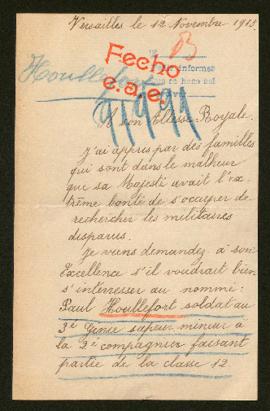 Versailles le 12 Novembre 1915
Houllefort
Fecho
c.a.e.
91991
son Altesse Royale.
J'ai appris par des familles
qui sont dans le malheur
que sa Majesté avait l'ex-
trême bonté de s'occuper de
rechercher les militaires
disparus.
Je viens demander à son
Excellence s'il voudrait bien
s'interresser au nommé:
Paul Houllefort soldat au
3e Génie sapeur mineur à
la 2e compagnie faisant
partie de la classe 12.